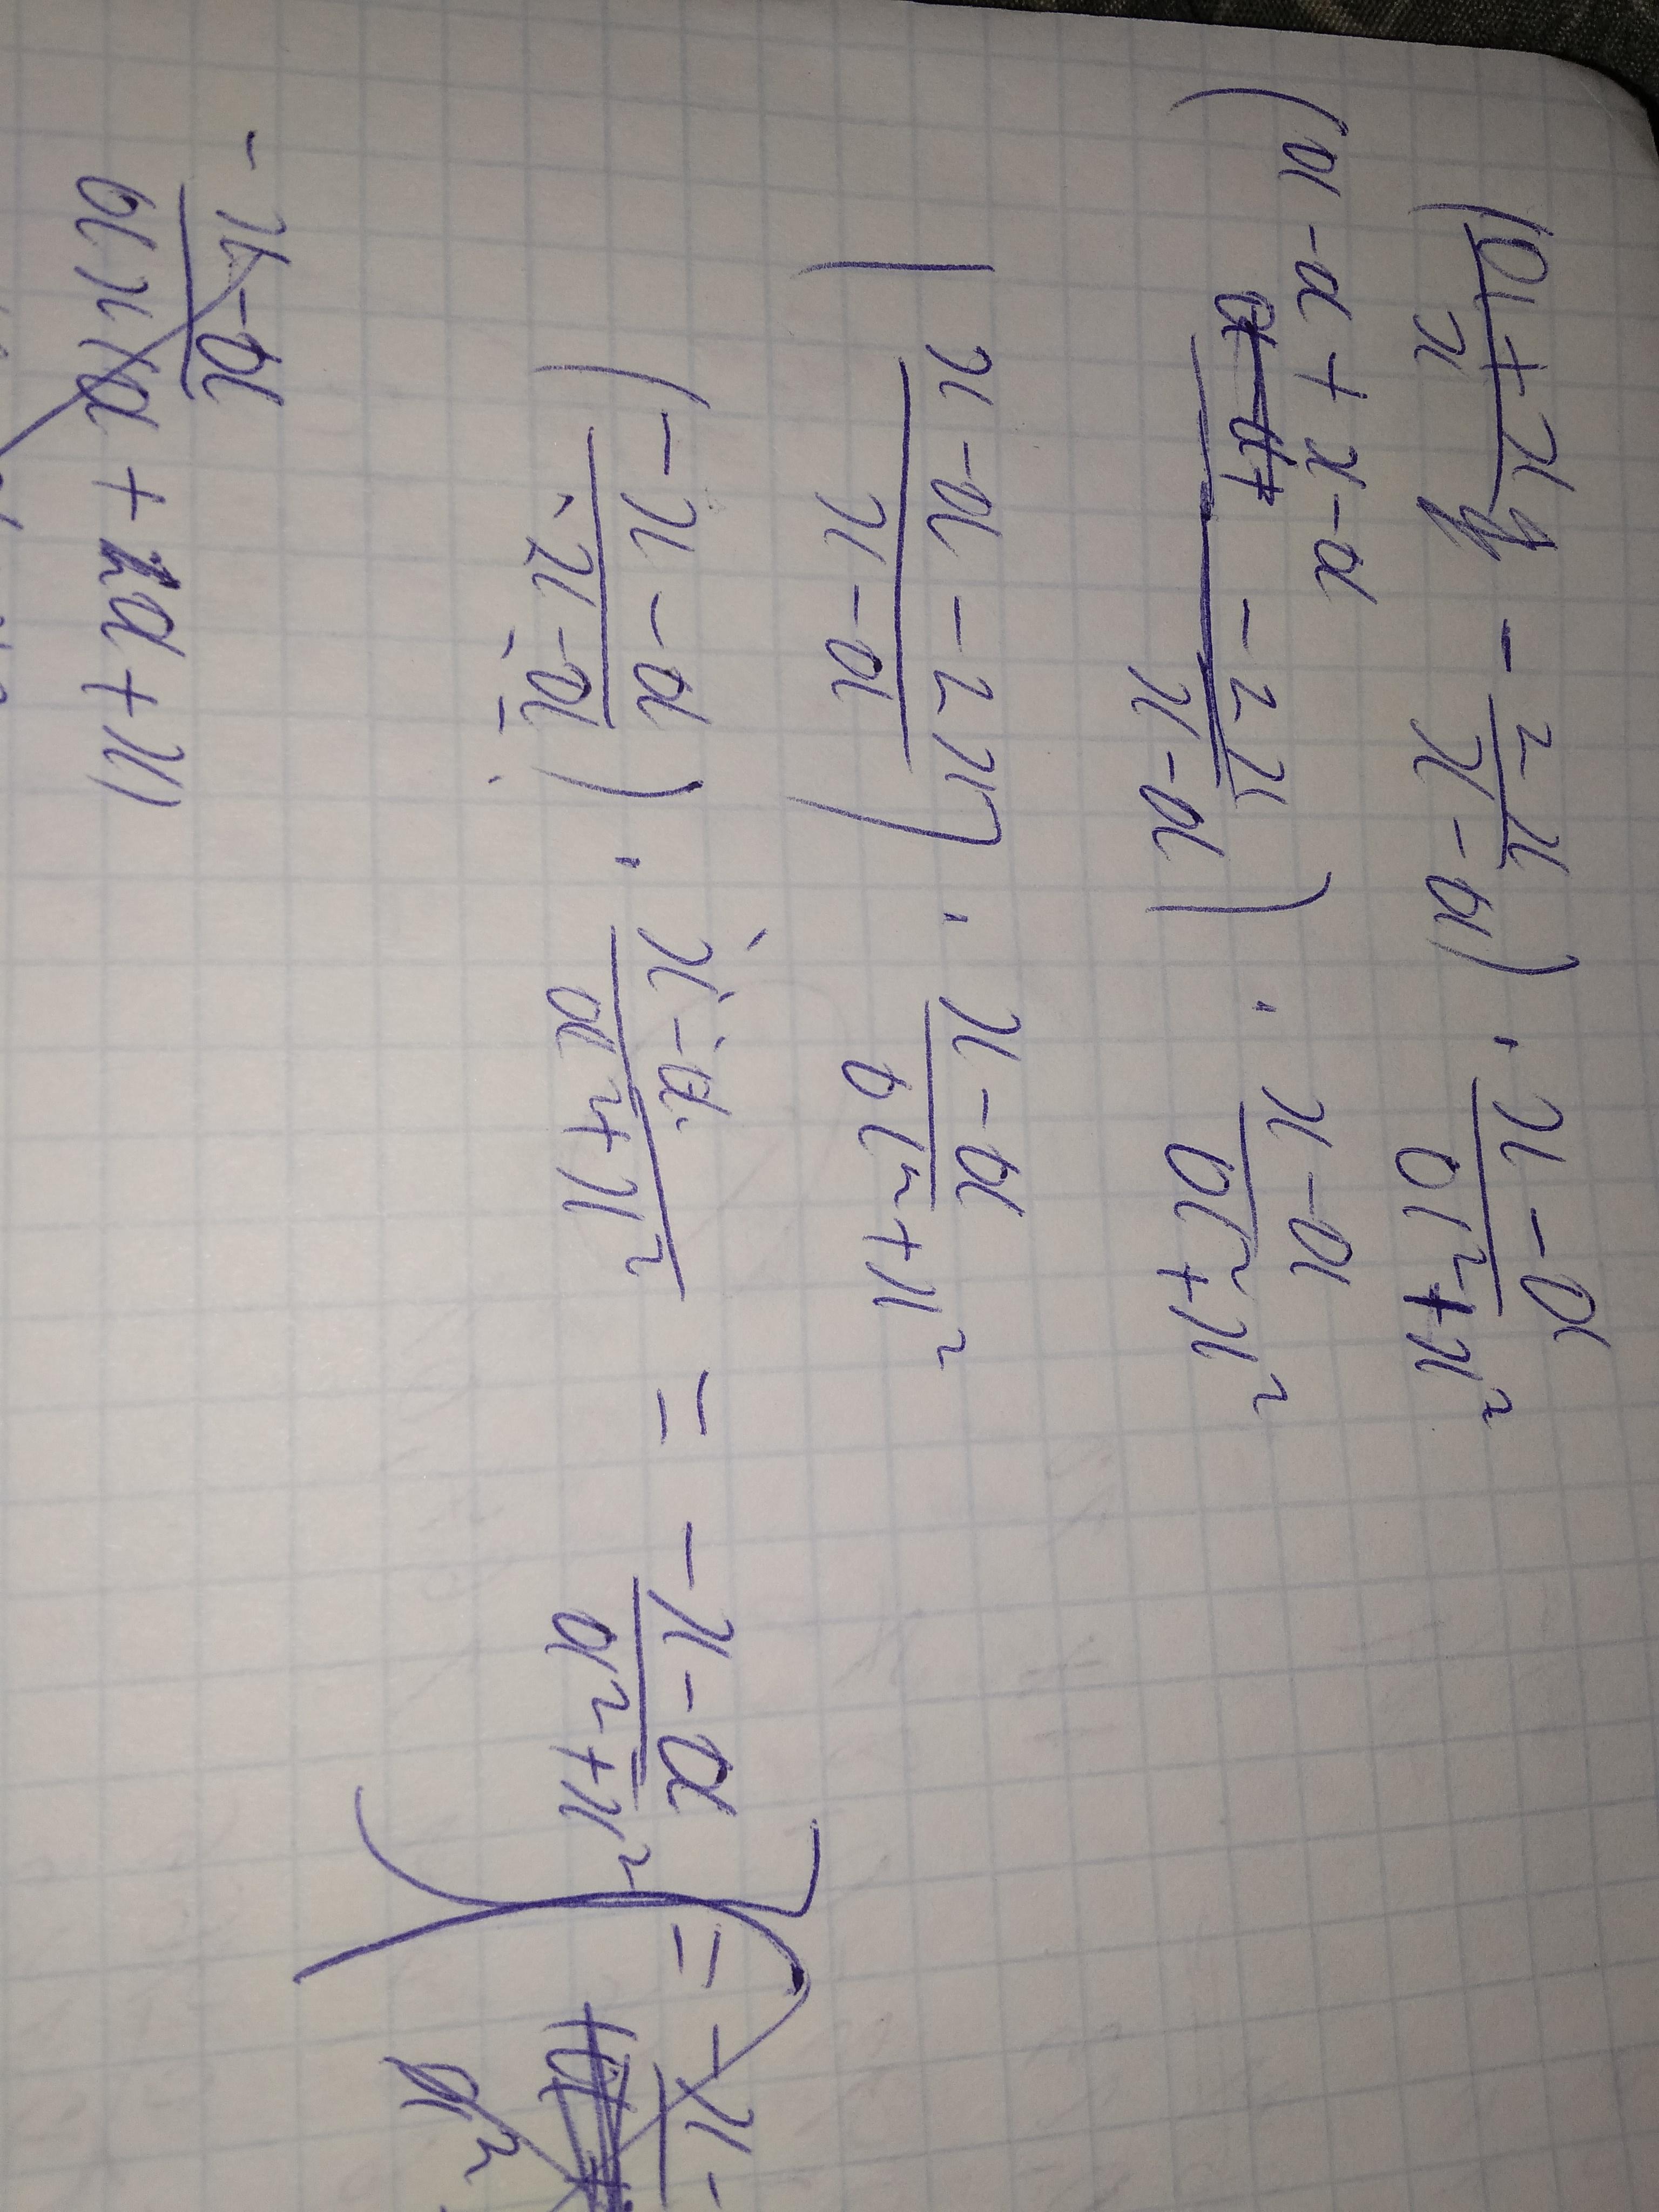 (a+x/x - 2x/x-a) · x-a/a²+x²
(a-a+x-a - 2x/x-a) · x-a/a²+x²
(x-a-2x/x-a) · x-a/a²+x²
(-x-a/x-a) · x-a/a²+x² = -x-a/a²+x² = -x-/a²
-x-a/ + 2a+x)